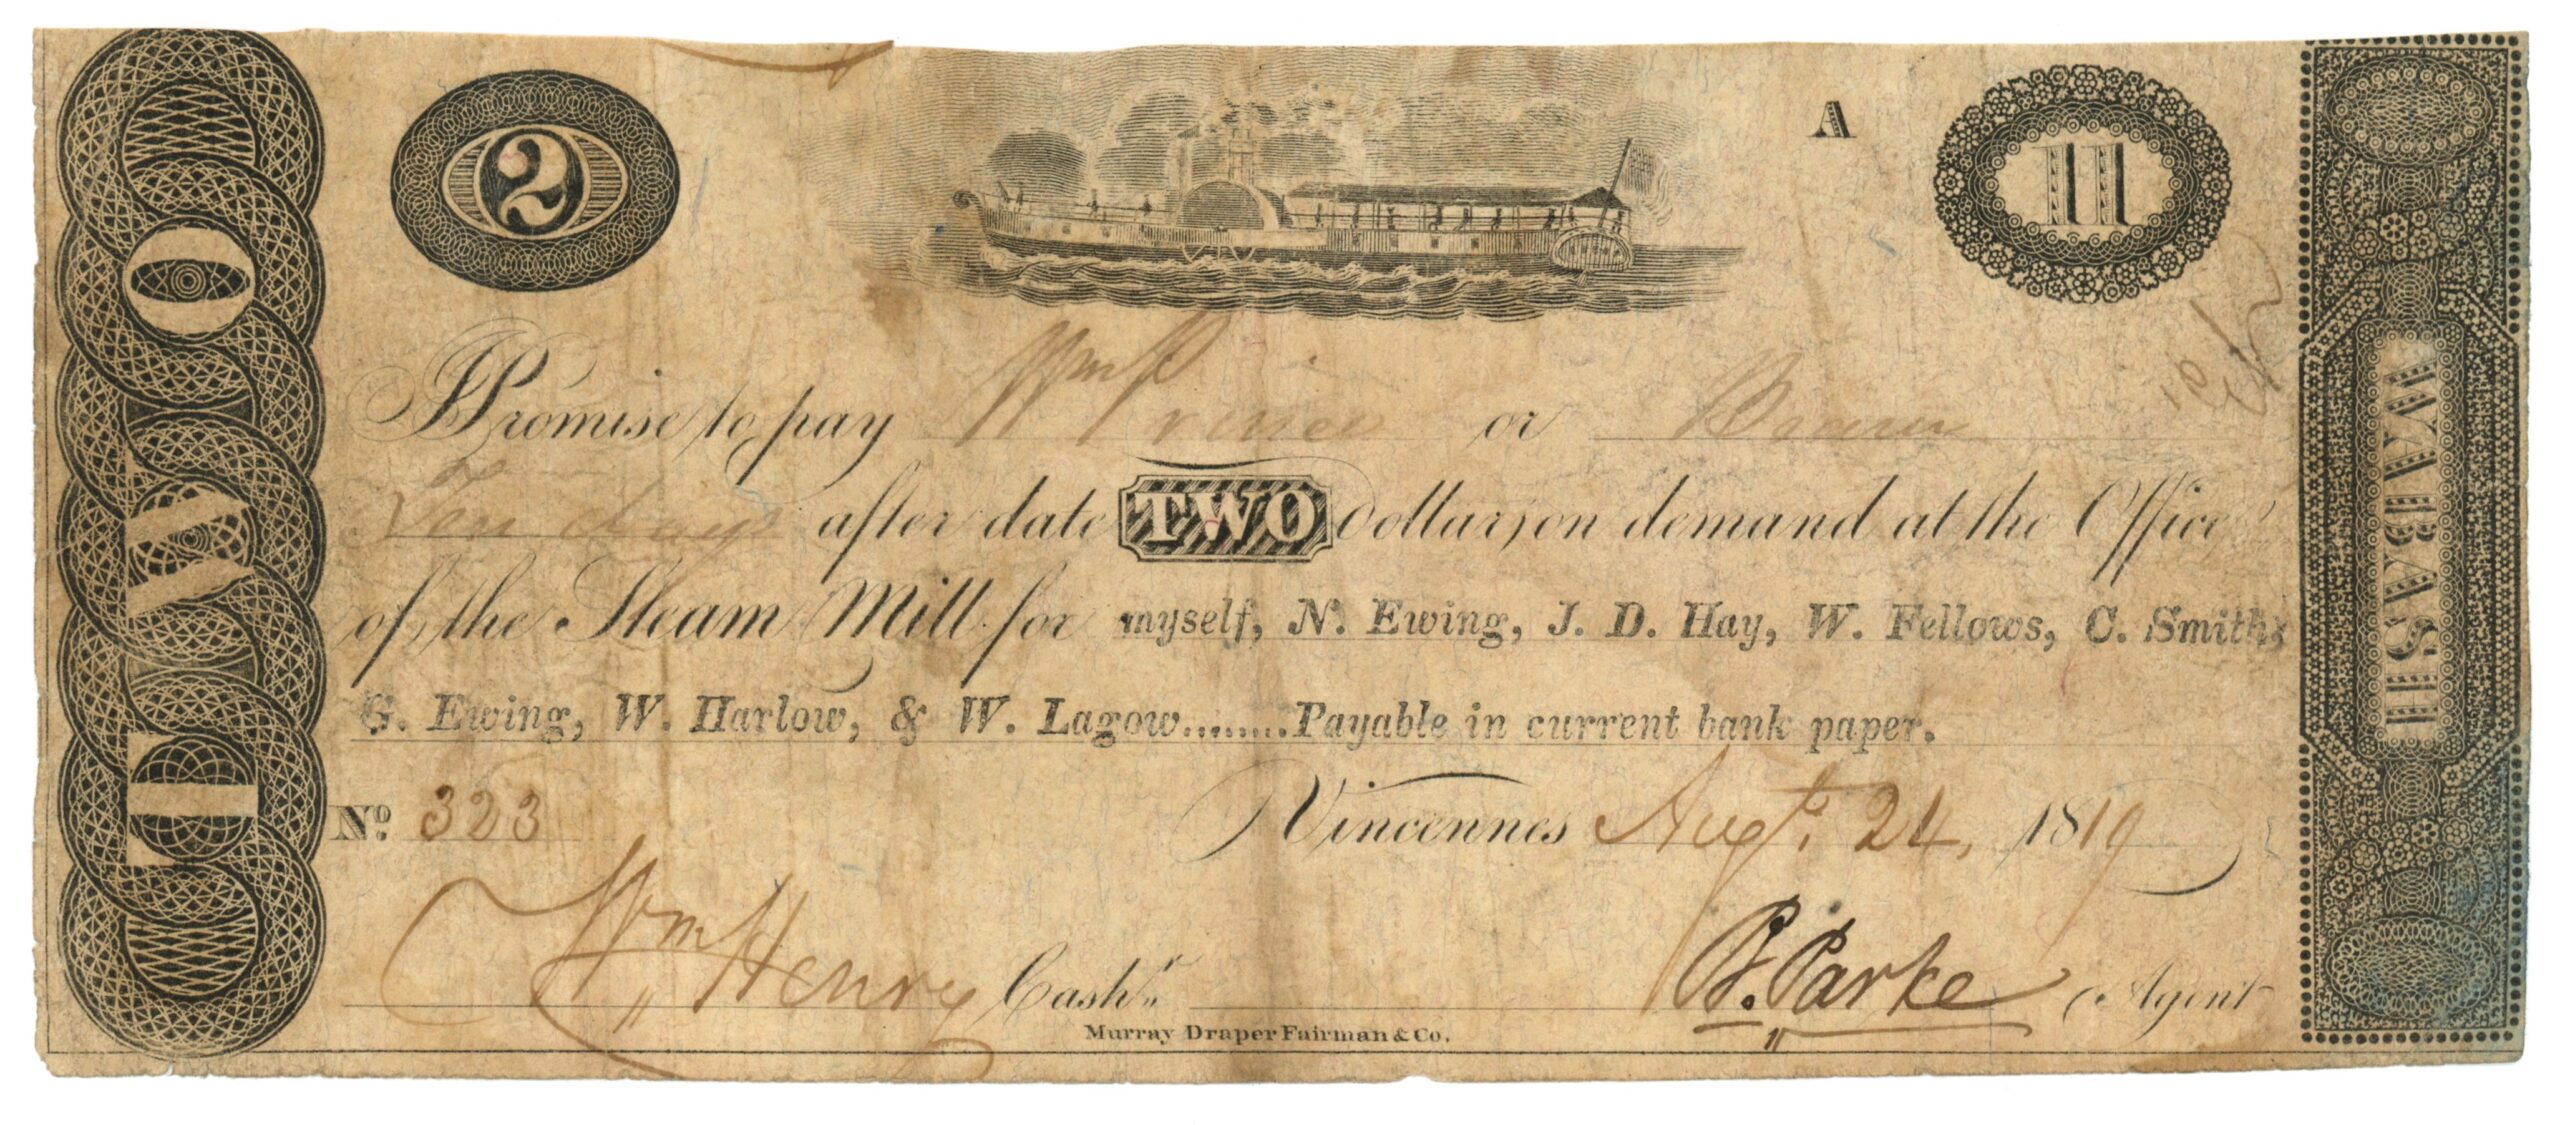 TWO
2
A
II
WABASH
I Promise to pay Wm Prince or Bearer
Ten days after date TWO Dollars, on demand at the Office
of the Steam Mill for myself, N. Ewing, J. D. Hay, W. Fellows, C. Smith,
G. Ewing, W. Harlow, & W. Lagow........Payable in current bank paper.
No. 323 Vincennes Augt. 24, 1819
Wm Henry Cashr. B. Parke Agent
Murray Draper Fairman & Co.